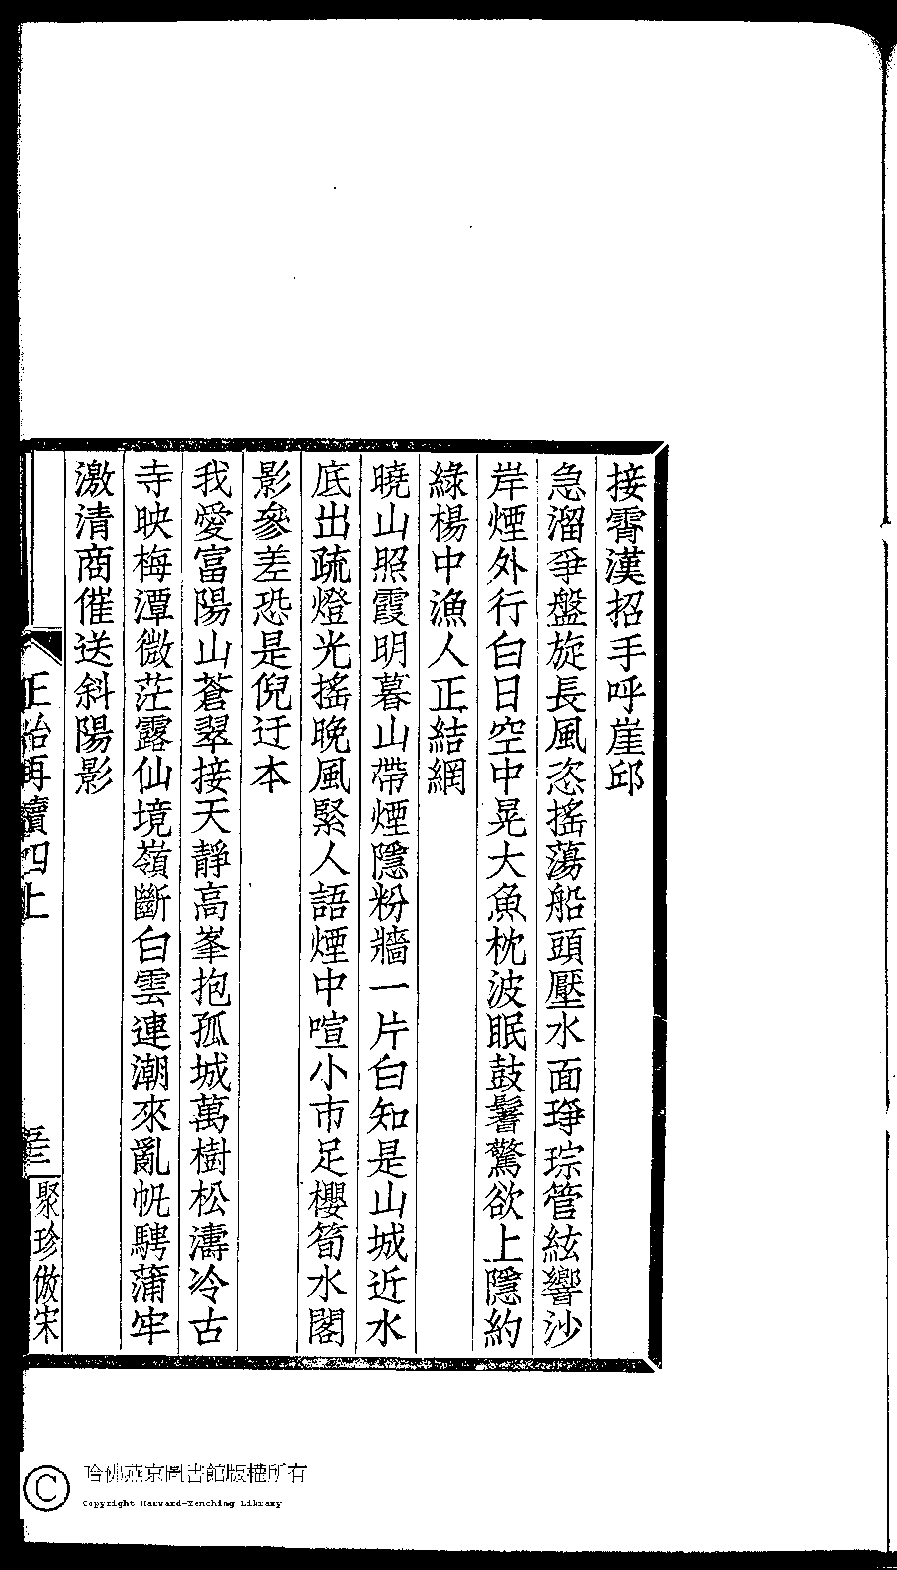 接霄漢招手呼崖邱
急溜爭盤旋長風恣搖蕩船頭壓水面琤琮管絃響沙
岸煙外行白日空中晃大魚枕波眠鼓鬐驚欲上隱約
綠楊中漁人正結網
曉山照霞明暮山帶煙隱粉牆一片白知是山城近水
底出疏燈光搖晚風緊人語煙中喧小市足櫻筍水閣
影參差恐是倪迂本
我愛富陽山蒼翠接天靜高峯抱孤城萬樹松濤冷古
寺映梅潭微茫露仙境嶺斷白雲連潮來亂帆騁蒲牢
激清商催送斜陽影
正始再續四上
聚珍倣宋
哈佛燕京圖書館版權所有
Copyright Harvard-Yenching Library